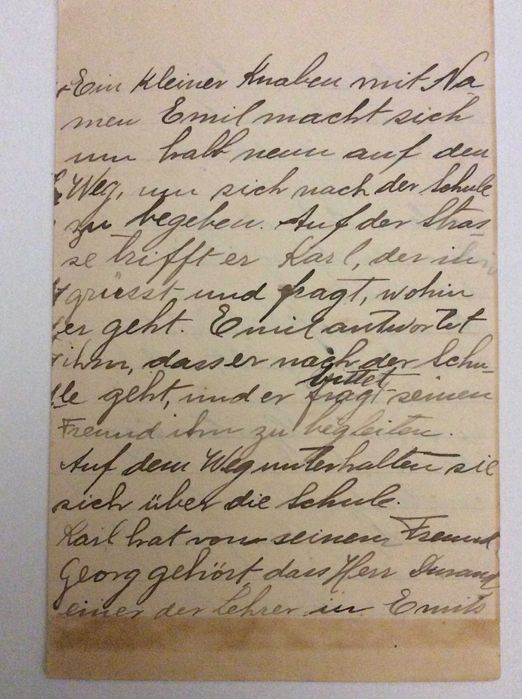 Ein kleiner Knaben mit Na
men Emil macht sich
um halb neun auf den
Weg, um sich nach der Schule
zu begeben. Auf der Stras
se trifft er Karl, der ihn
grüsst und fragt, wohin
er geht. Emil antwortet
ihm, dass er nach der Schu
le geht, und er fragt seinen
bittet
Freund ihm zu begleiten.
Auf dem Weg unterhalten sie
sich über die Schule.
Karl hat von seinem Freund
Georg gehört, dass Herr Durand
einer der Lehrer in Emils